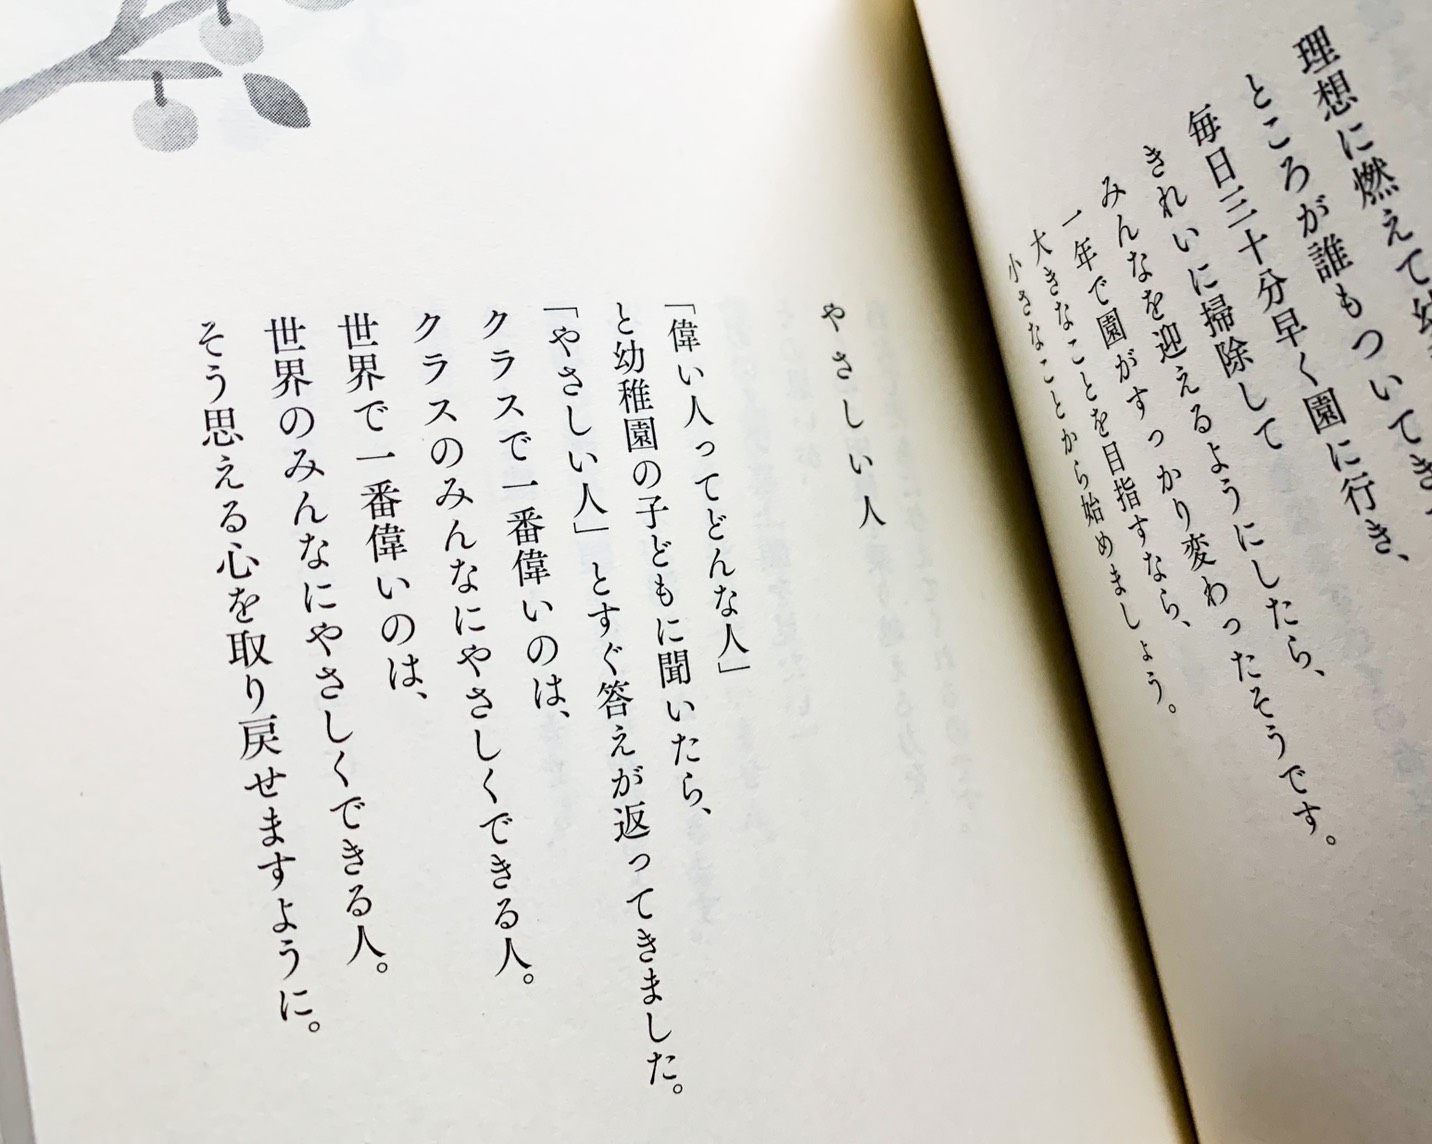 理想に燃えて
ところが誰もついてき
毎日三十分早く園に行き、
きれいに掃除して
みんなを迎えるようにしたら、
一年で園がすっかり変わったそうです。
大きなことを目指すなら、
小さなことから始めましょう。
やさしい人
「偉い人ってどんな人」
と幼稚園の子どもに聞いたら、
「やさしい人」とすぐ答えが返ってきました。
クラスで一番偉いのは、
クラスのみんなにやさしくできる人。
世界で一番偉いのは、
世界のみんなにやさしくできる人。
そう思える心を取り戻せますように。